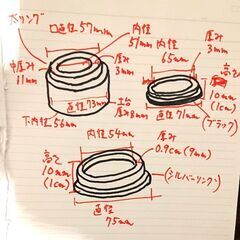 本リング
口直径57mm
内径
51mm
厚み
3mm
巾厚み
11mm
直径73mm
土台
厚み8mm
下内径56mm
内径
65mm
厚み
3mm
高さ
10mm
(1cm)
直径71mm
(ブラック)
内径54mm
厚み
0.9cm(9mm)
高さ
10mm
(1cm)
(シルバーリング)
直径
75mm